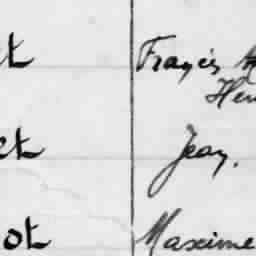 et Francis
Hen
et Jean.
ot Maxime